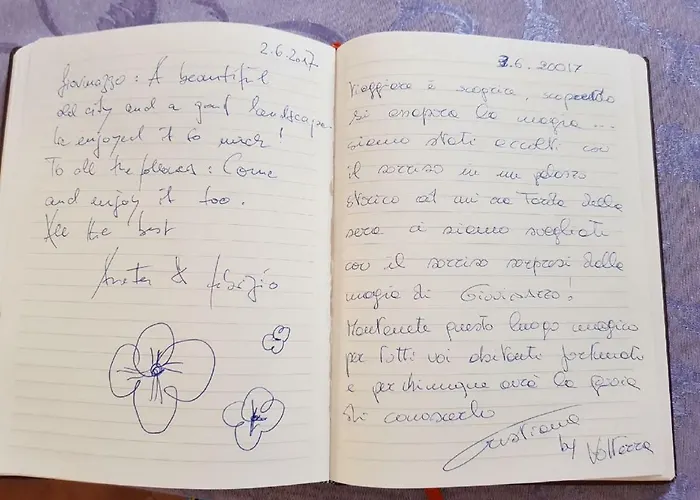 2.6.2017
Giovinazzo : A beautiful
old city and a great landscape.
We enjoyed it so much!
To all the places : Come
and enjoy it too.
All the best
&
2.6.20017
Viaggiare è scoprire, scoprendo
si assapora la magia ...
siamo stati accolti con
il sorriso in un palazzo
storico ad un'ora Tarda della
sera ci siamo svegliati
con il sorriso sorpresi dalla
magia di Giovinazzo!
Mantenete questo luogo magico
per Tutti voi abitanti fortunati
e per chiunque avrà la gioia
di conoscerlo
Cristiana
by Volterra